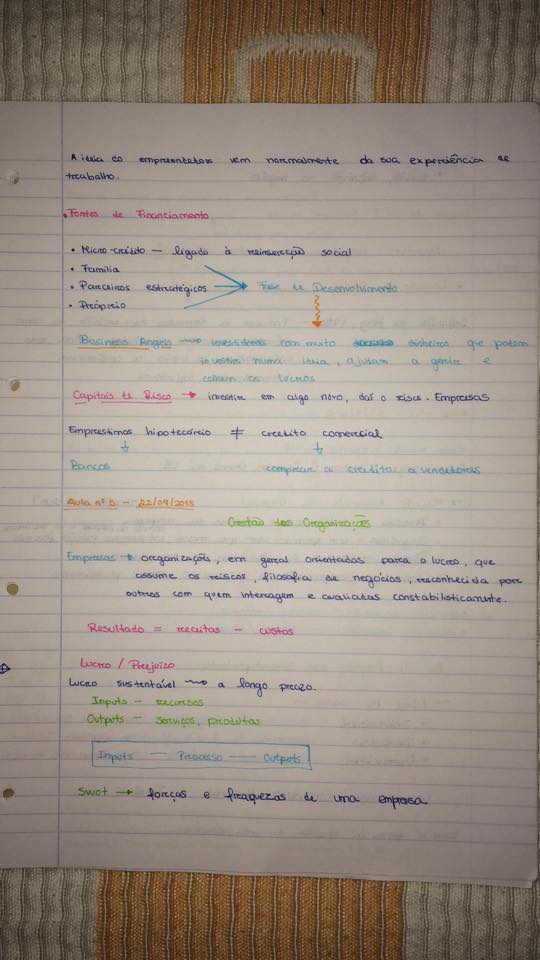 A ideia do empreendedor vem normalmente da sua experiência de
trabalho.
• Fontes de Financiamento
• Micro-crédito — ligado à reinserção social
• Família
• Parceiros estratégicos → Fase de Desenvolvimento
• Próprio
Business Angels → Investidores com muito dinheiro que podem
investir numa ideia, ajudam a gerir e
colham os lucros
Capitais de Risco → investir em algo novo, daí o risco. Empresas
Empréstimos hipotecário ≠ crédito comercial
↓ ↓
Bancos comprar a crédito a vendedores
Aula nº 3 - 22/09/2015
Gestão das Organizações
Empresas → organizações, em geral orientadas para o lucro, que
assume os riscos, filosofia de negócios, reconhecida por
outros com quem interagem e avaliadas constabilisticamente.
Resultado = receitas - custos
Lucro / Prejuízo
Lucro sustentável → a longo prazo.
Inputs - recursos
Outputs - serviços, produtos
Inputs — Processo — Outputs
Swot → forças e fraquezas de uma empresa